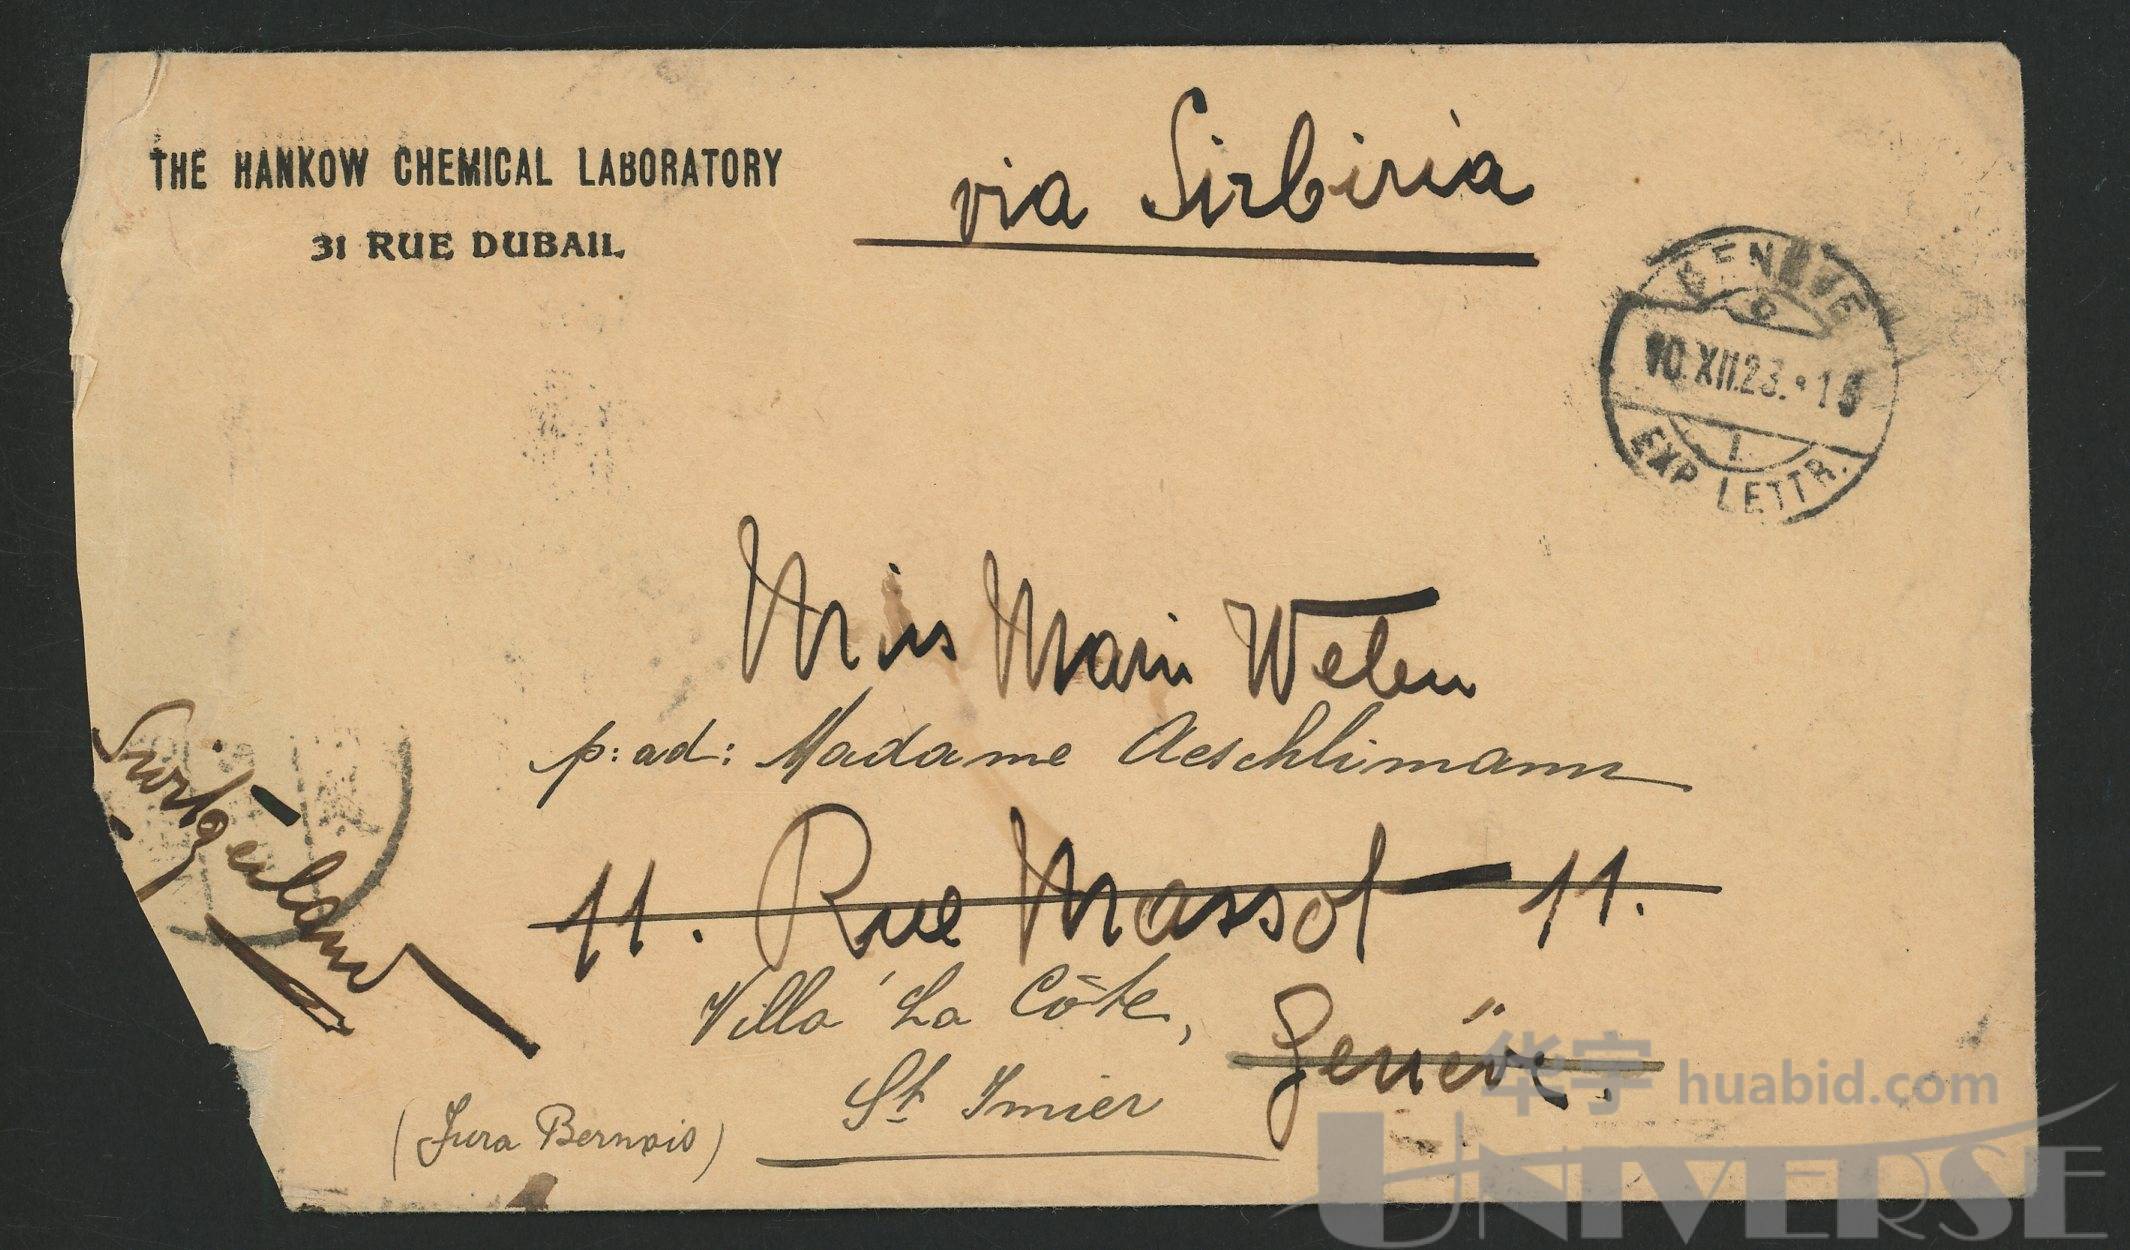 THE HANKOW CHEMICAL LABORATORY
31 RUE DUBAIL
via Sirbiria
GENÈVE
10.XII.23.
1.
EXP. LETTR.
Miss Marie
p: ad: Madame Aeschlimann
11. Rue Massot — 11.
Villa La Côte,
Genève.
St Imier
(Jura Bernois)
华宇 huabid.com
UNIVERSE